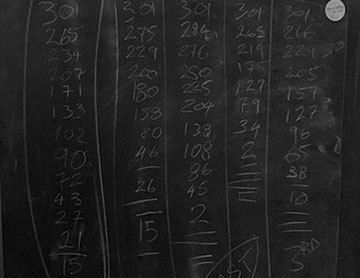 301 301 301 301 301
265 275 284 265 266
234 229 276 219 229
207 200 250 175 205
171 180 225 127 157
133 158 204 79 127
102 80 138 34 96
90 46 108 2 65
72 26 86 38
43 15 45 10
27 2 5RD
21
15